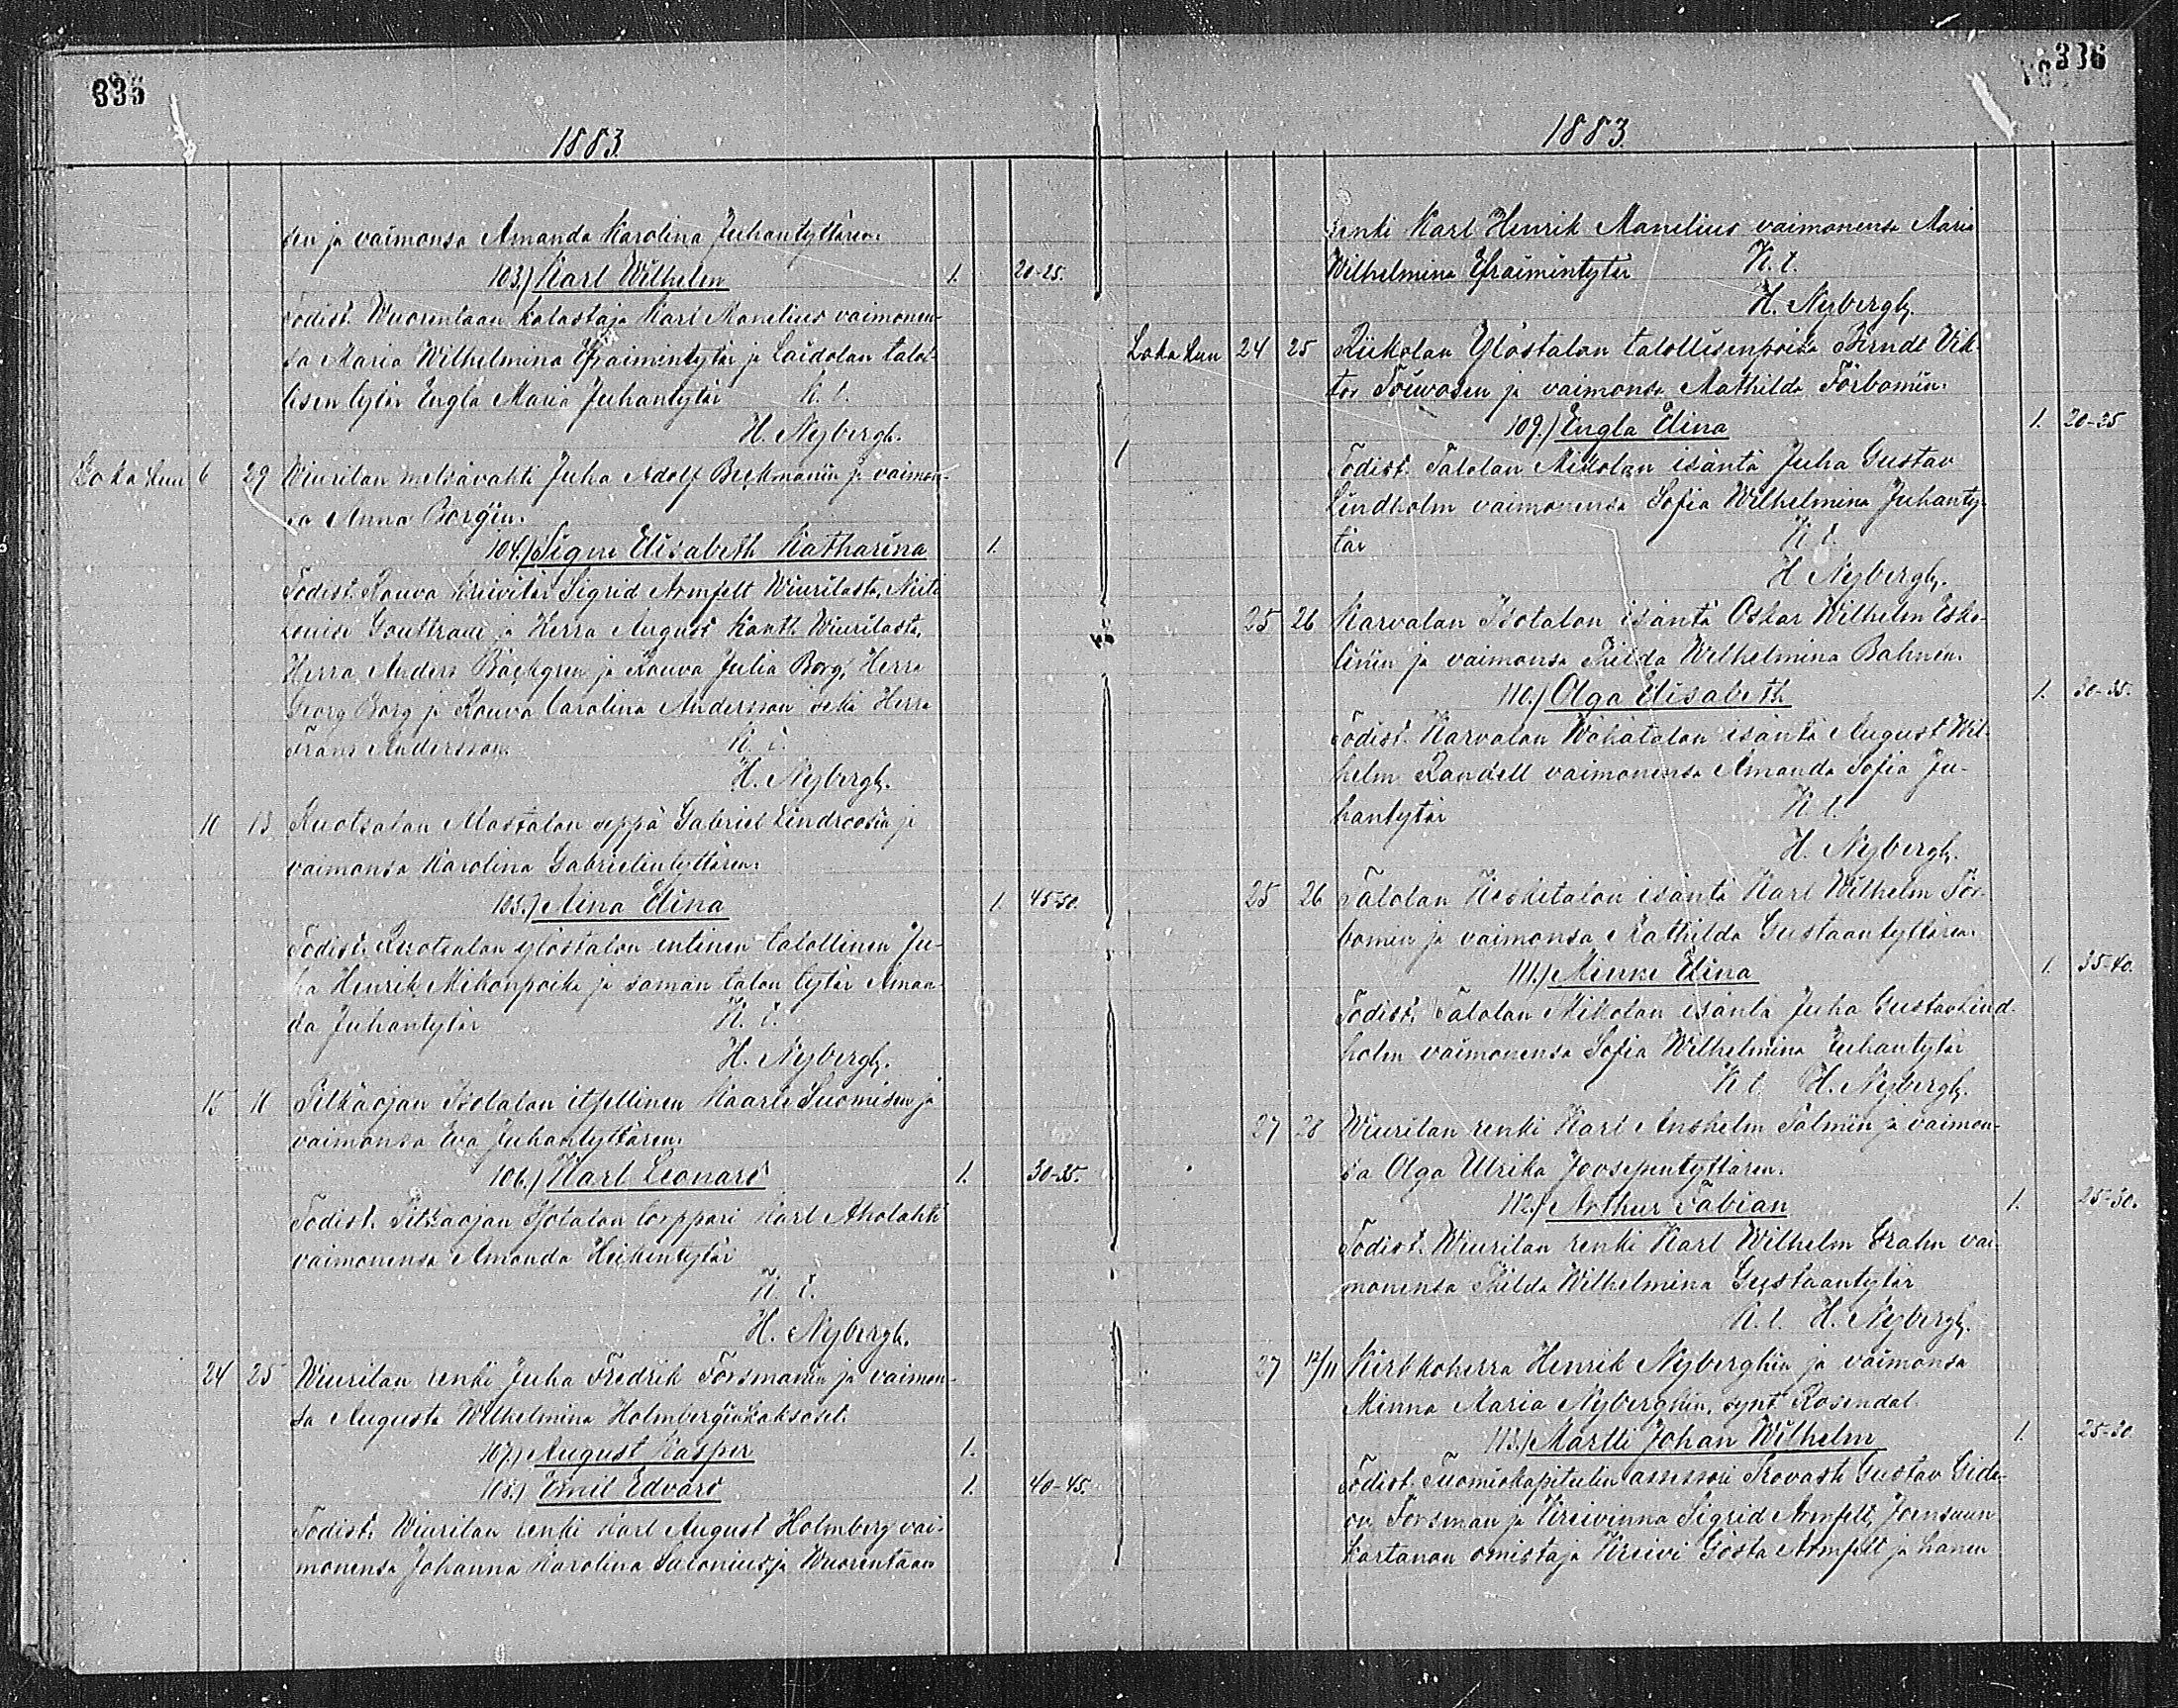 335
1883.
sen ja vaimonsa Amanda Karolina Juhantyttären.
103.) Karl Wilhelm 1. 20-25.
Todist. Wuorentaan kalastaja Karl Manelius vaimonen-
sa Maria Wilhelmina Efraimintytär ja Laidolan talol-
lisen tytär Engla Maria Juhantytär K. t.
H. Nybergh.
Loka kuu 6 29 Wiurilan metsävahti Juha Adolf Beckmanin ja vaimon-
sa Anna Borgin.
104.) Signe Elisabeth Katharina 1.
Todist. Rouva Kreivitär Sigrid Armfelt Wiurilasta, Neiti
Louise Gouttraue ja Herra August Kanth Wiurilasta,
Herra Anders Bäckgren ja Rouva Julia Borg, Herra
Georg Borg ja Rouva Carolina Andersson sekä Herra
Frans Andersson. K. t.
H. Nybergh.
10 13 Ruotsalan Alastalon seppä Gabriel Lindroosin ja
vaimonsa Karolina Gabrielintyttären.
105.) Aina Elina 1. 45-50.
Todist. Ruotsalan ylöstalon entinen talollinen Ju-
ha Henrik Mikonpoika ja saman talon tytär Aman-
da Juhantytär K. t.
H. Nybergh.
15 16 Pitkäojan Isotalon itsellinen Kaarle Suomisen ja
vaimonsa Eva Juhantyttären.
106.) Karl Leonard 1. 30-35.
Todist. Pitkäojan Isotalon torppari Karl Aholahti
vaimonensa Amanda Heikintytär
K. t.
H. Nybergh.
24 25 Wiurilan renki Juha Fredrik Forsmanin ja vaimon-
sa Augusta Wilhelmina Holmbergin kaksoset.
107.) August Kasper 1.
108.) Emil Edvard 1. 40-45.
Todist. Wiurilan renki Karl August Holmberg vai-
monensa Johanna Karolina Salonius ja Wuorentaan
336
1883.
renki Karl Henrik Manelius vaimonensa Maria
Wilhelmina Efraimintytär K. t.
H. Nybergh.
Loka kuu 24 25 Riikolan Ylöstalon talollisenpoika Berndt Vik-
tor Touvosen ja vaimonsa Mathilda Förbomin.
109.) Engla Elina 1. 20-25
Todist. Talolan Mikolan isäntä Juha Gustav
Lindholm vaimonensa Sofia Wilhelmina Juhanty-
tär K. t.
H. Nybergh.
25 26 Karvalan Isotalon isäntä Oskar Wilhelm Eske-
linin ja vaimonsa Hilda Wilhelmina Bahnen.
110.) Olga Elisabeth 1. 30-35.
Todist. Karvalan Wähätalon isäntä August Wil-
helm Randell vaimonensa Amanda Sofia Ju-
hantytär K. t.
H. Nybergh.
25 26 Talolan Keskitalon isäntä Karl Wilhelm För-
bomin ja vaimonsa Mathilda Gustaantyttären.
111.) Minni Elina 1. 35-40.
Todist. Talolan Mikolan isäntä Juha Gustav Lind-
holm vaimonensa Sofia Wilhelmina Juhantytär
K. t. H. Nybergh.
27 28 Wiurilan renki Karl Anshelm Salmin ja vaimon-
sa Olga Ulrika Joosepintyttären.
112.) Arthur Fabian 1. 25-30.
Todist. Wiurilan renki Karl Wilhelm Gralm vai-
monensa Hilda Wilhelmina Gustaantytär
K. t. H. Nybergh.
27 12/11 Kirkkoherra Henrik Nyberghin ja vaimonsa
Minna Maria Nyberghin, synt. Rosendal.
113.) Martti Johan Wilhelm 1. 25-30
Todist. Tuomiokapitulin assessori Provasti Gustav Gide-
on Forsman ja Kreivinna Sigrid Armfelt, Joensuun
kartanon omistaja Kreivi Gösta Armfelt ja hänen